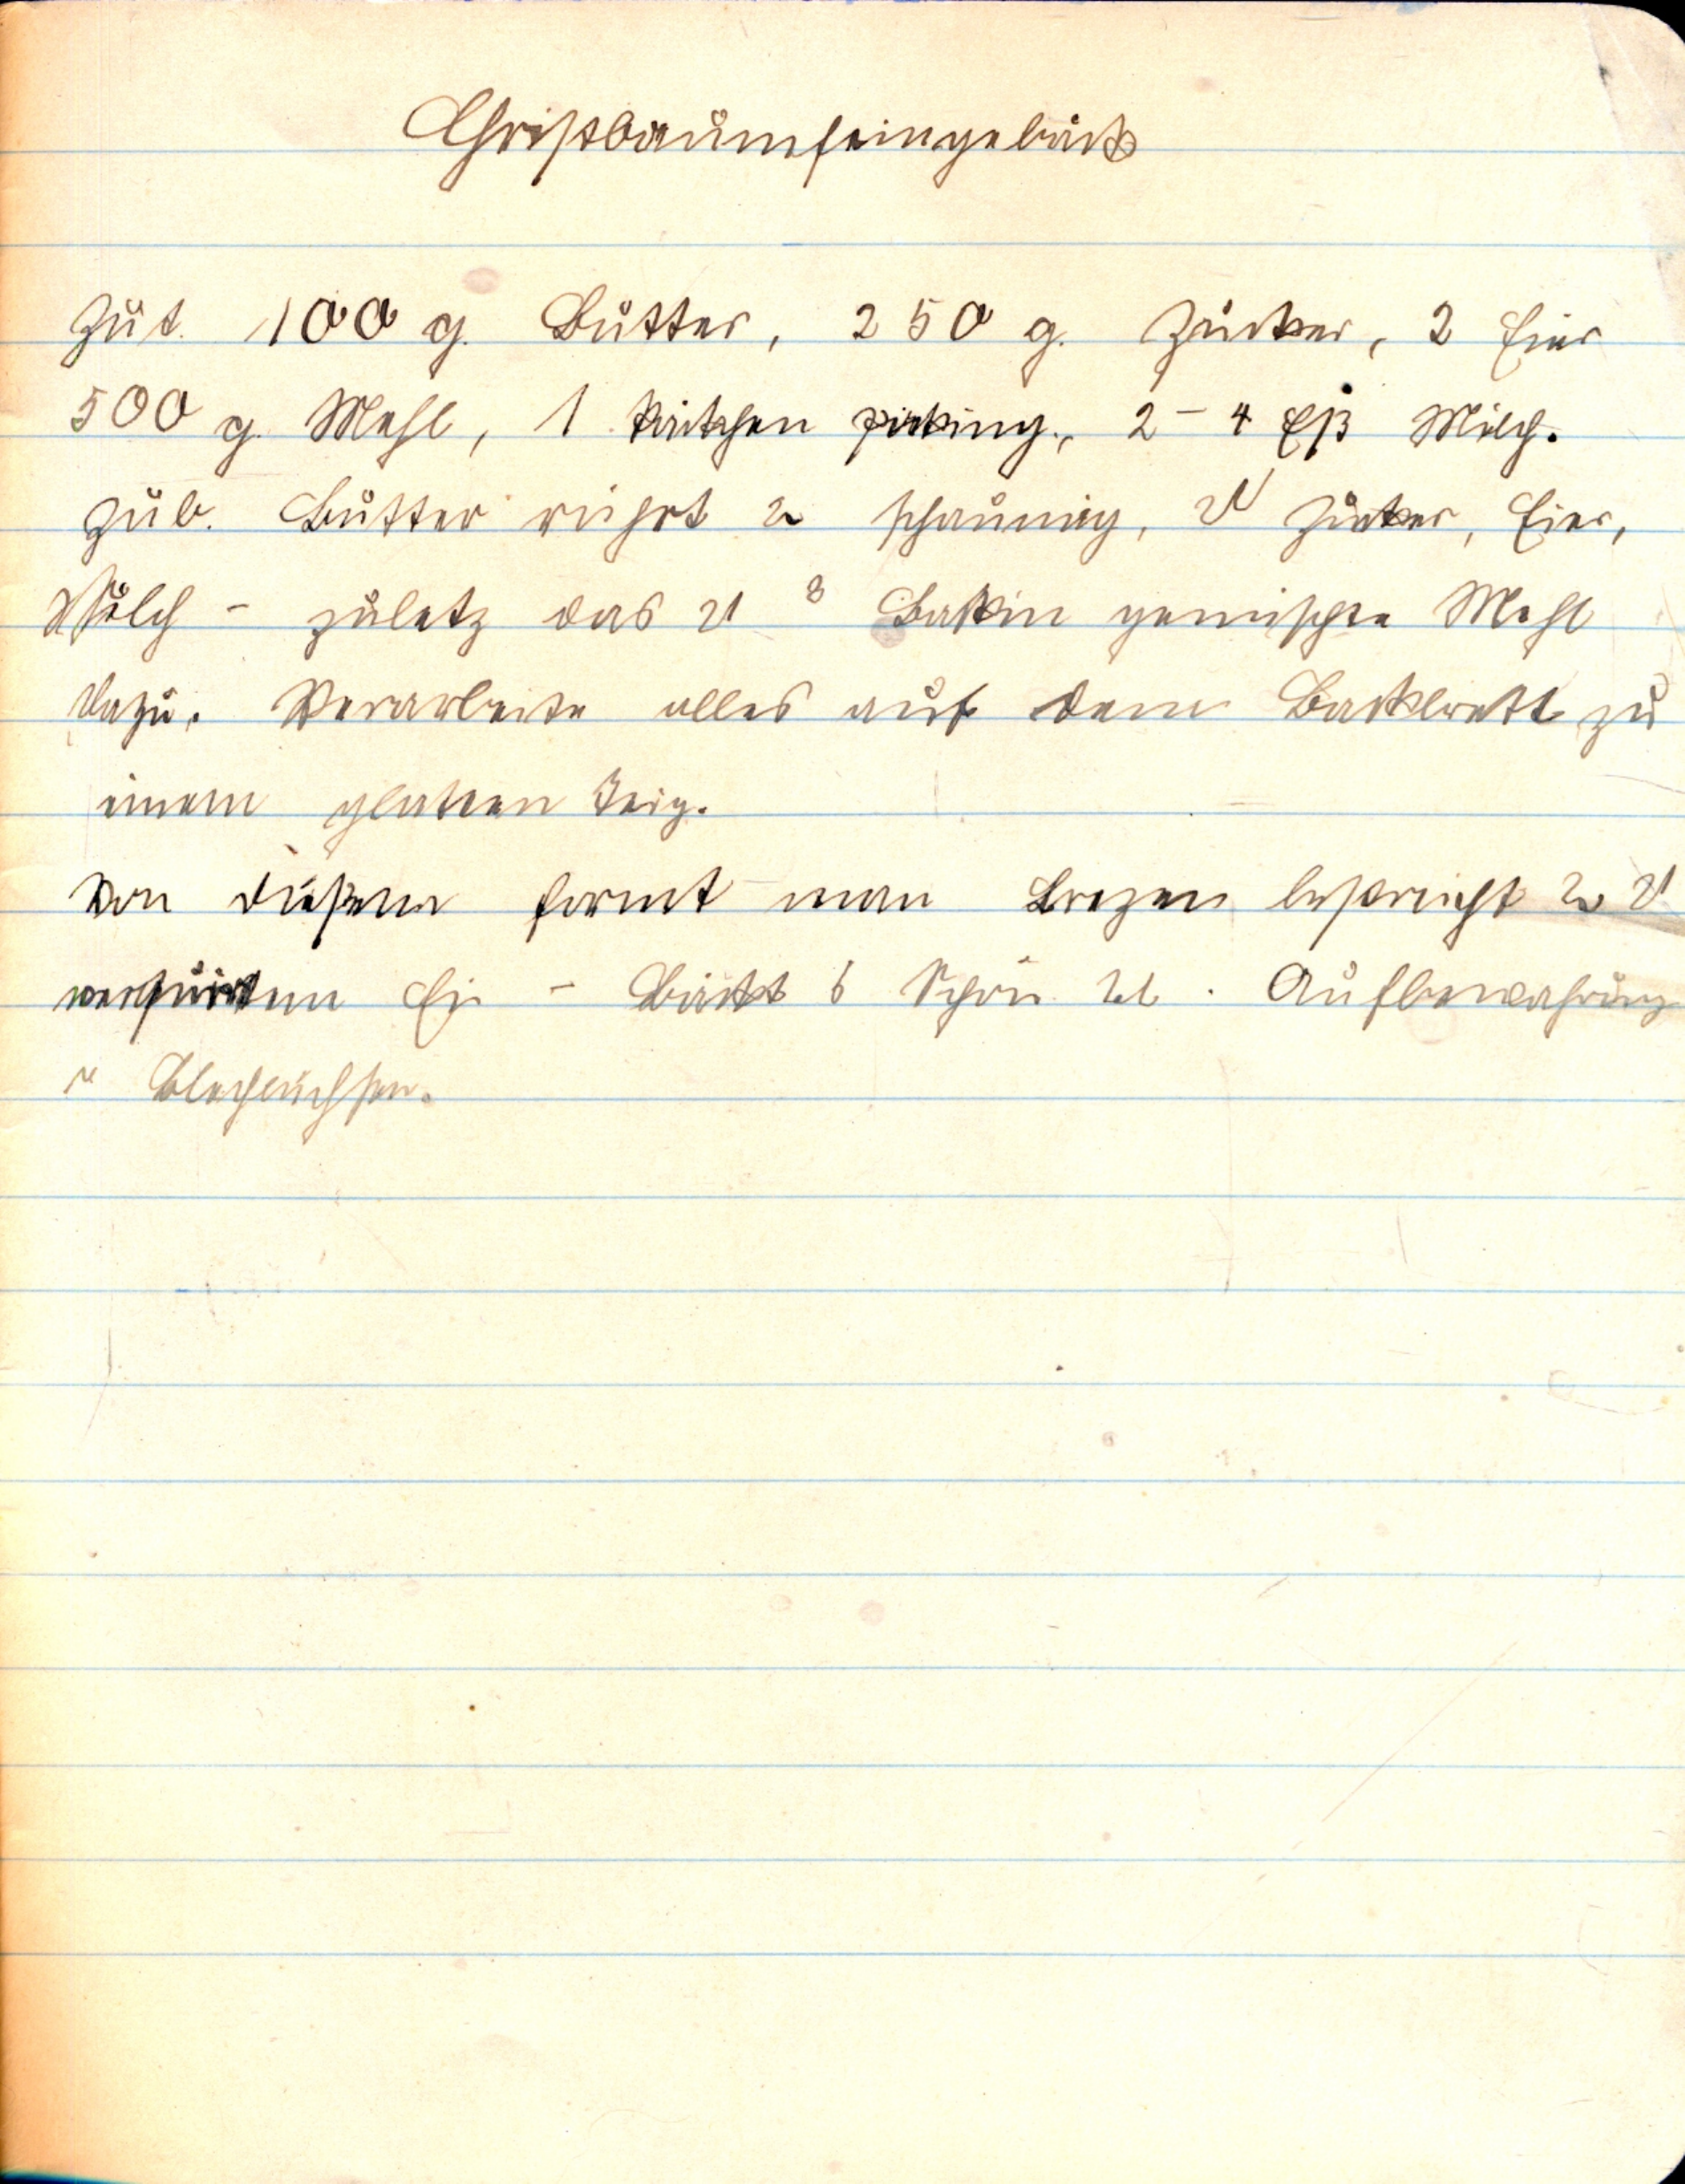 Christbaumfeingebäck
Zut. 100 g. Butter, 250 g. Zucker, 2 Eier
500 g. Mehl, 1 Päckchen 2 - 4 Eßl Milch.
Zub. Butter rührt schaumig, Zucker, Eier,
Milch - zuletz das Backin gemischte Mehl
dazu. Verarbeite alles auf dem Backbrett zu
einem glatten Teig.
Von diesem formt man Brezen bestreicht
Ei - Bäckt schön. Aufbewahrung
Blechbüchsen.